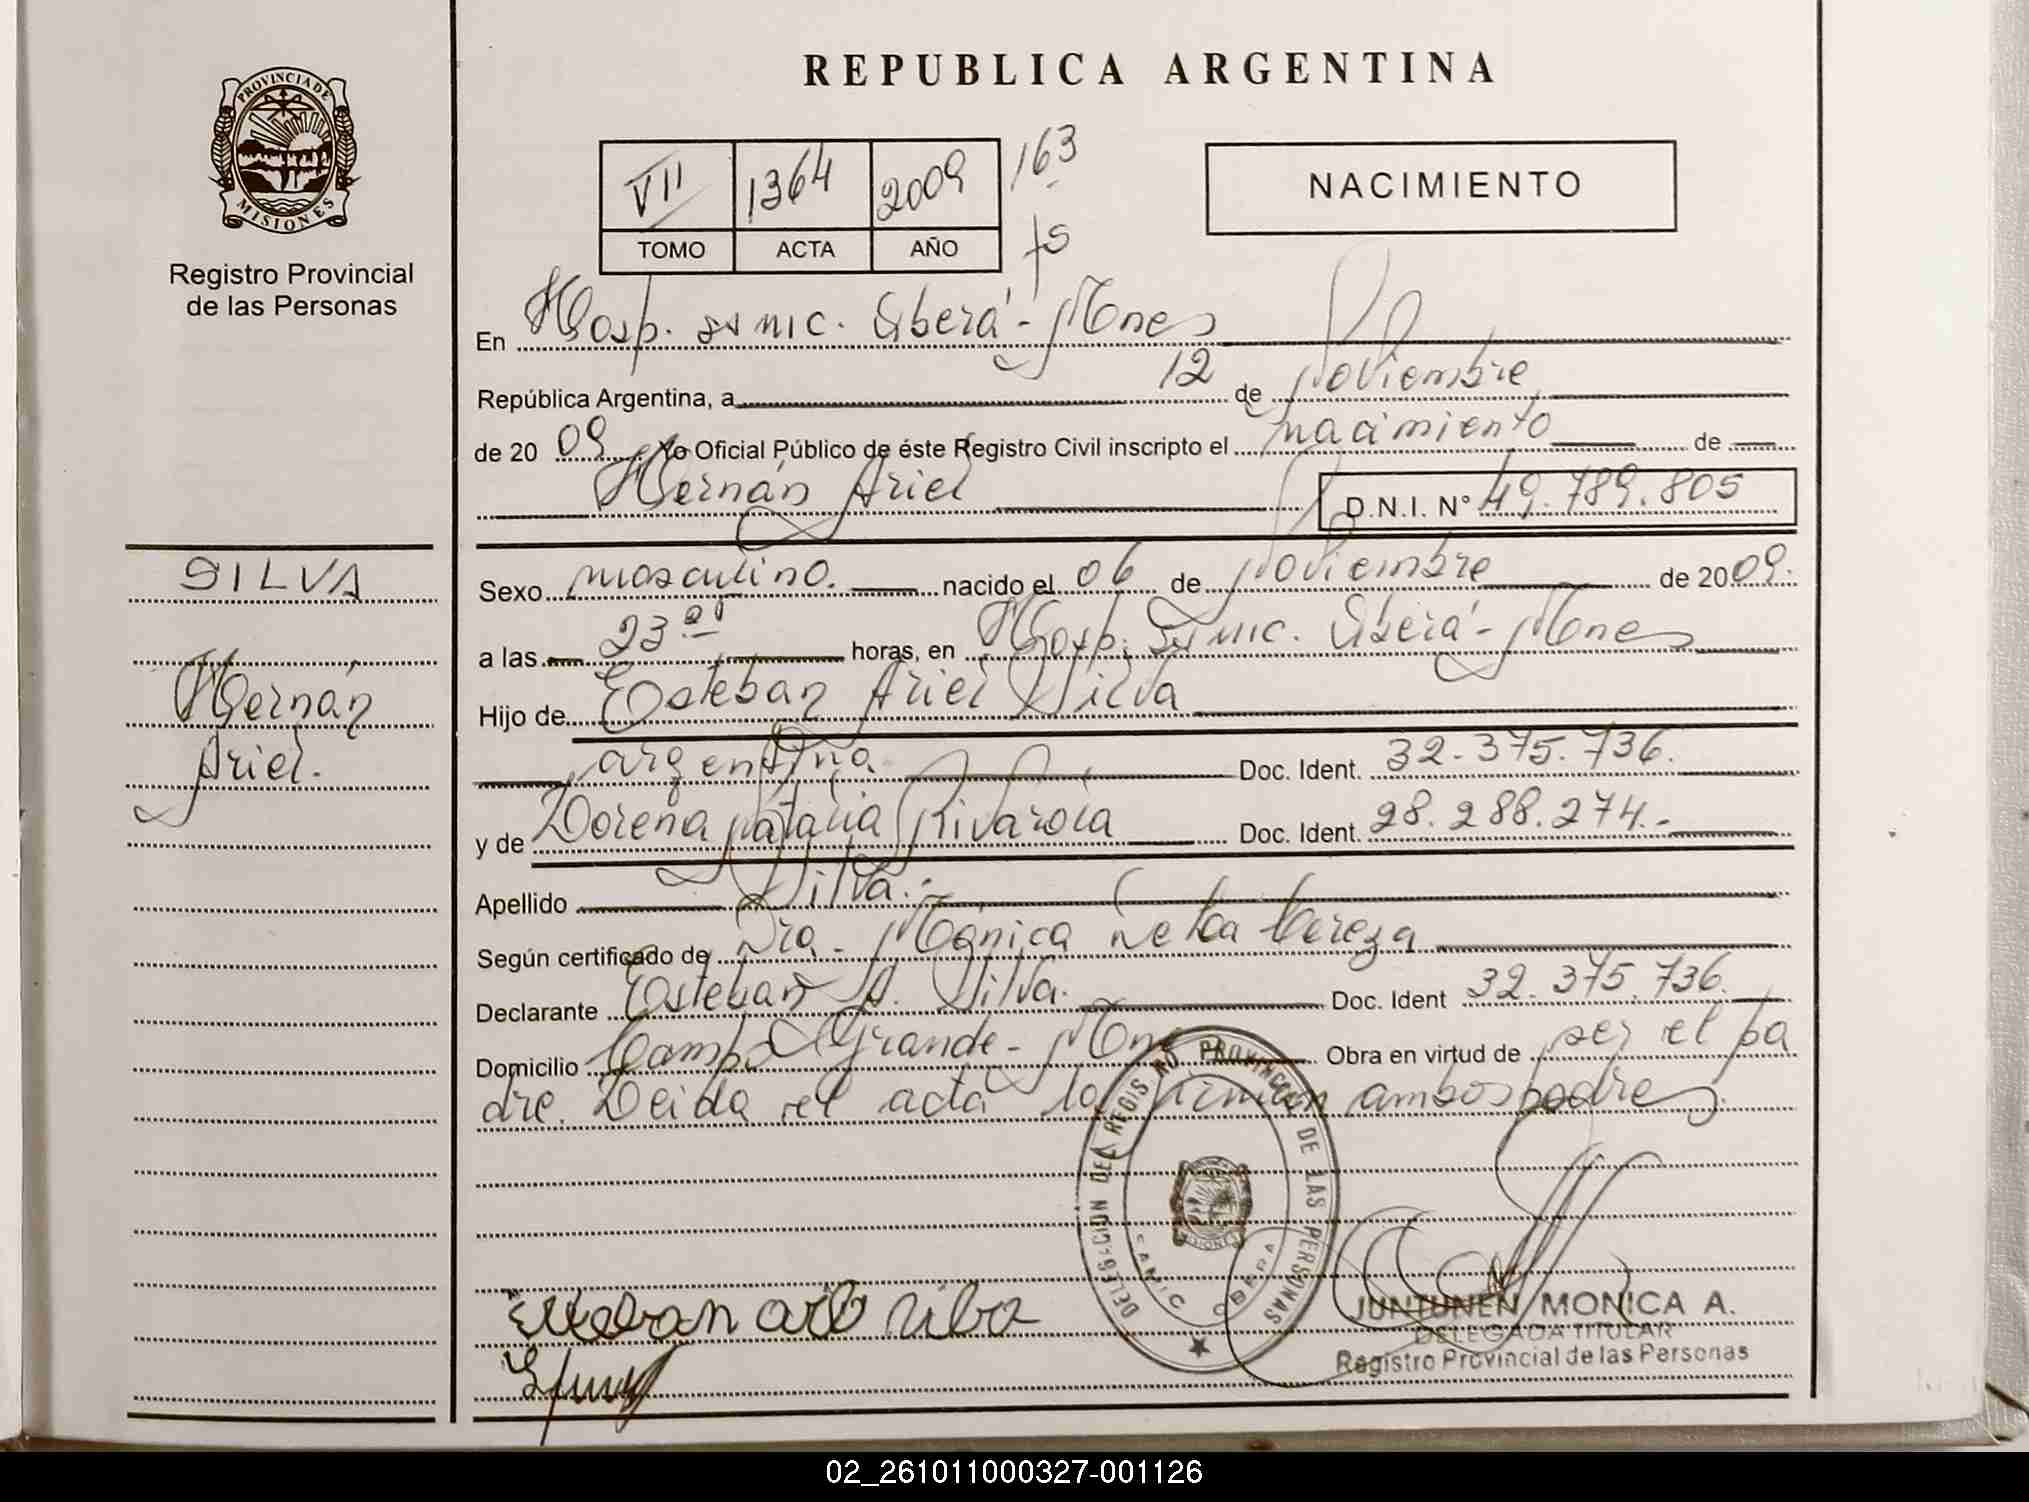 PROVINCIA DE
MISIONES
Registro Provincial
de las Personas
SILVA
Hernán
Ariel.
REPUBLICA ARGENTINA
VII 1364 2009 163
TOMO ACTA AÑO fs
NACIMIENTO
En Hosp. Samic. Oberá - Mnes
República Argentina, a 12 de Noviembre
de 20 09 Yo Oficial Público de éste Registro Civil inscripto el nacimiento de
Hernán Ariel D.N.I. N° 49.789.805
Sexo masculino. nacido el 06 de Noviembre de 20 09.
a las 23 horas, en Hosp. Samic. Oberá - Mnes
Hijo de Esteban Ariel Silva
argentina Doc. Ident. 32.375.736.
y de Lorena Natalia Rivarola Doc. Ident. 28.288.274.-
Apellido Silva.-
Según certificado de Dra. Mónica
Declarante Esteban A. Silva. Doc. Ident 32.375.736.
Domicilio Campo Grande - Mnes Obra en virtud de ser el pa
dre. Leida el acta la firman ambos padres
DELEGACION DEL REGISTRO PROVINCIAL DE LAS PERSONAS
SAMIC OBERA
MISIONES
JUNTUNEN MONICA A.
DELEGADA TITULAR
Registro Provincial de las Personas
02_261011000327-001126